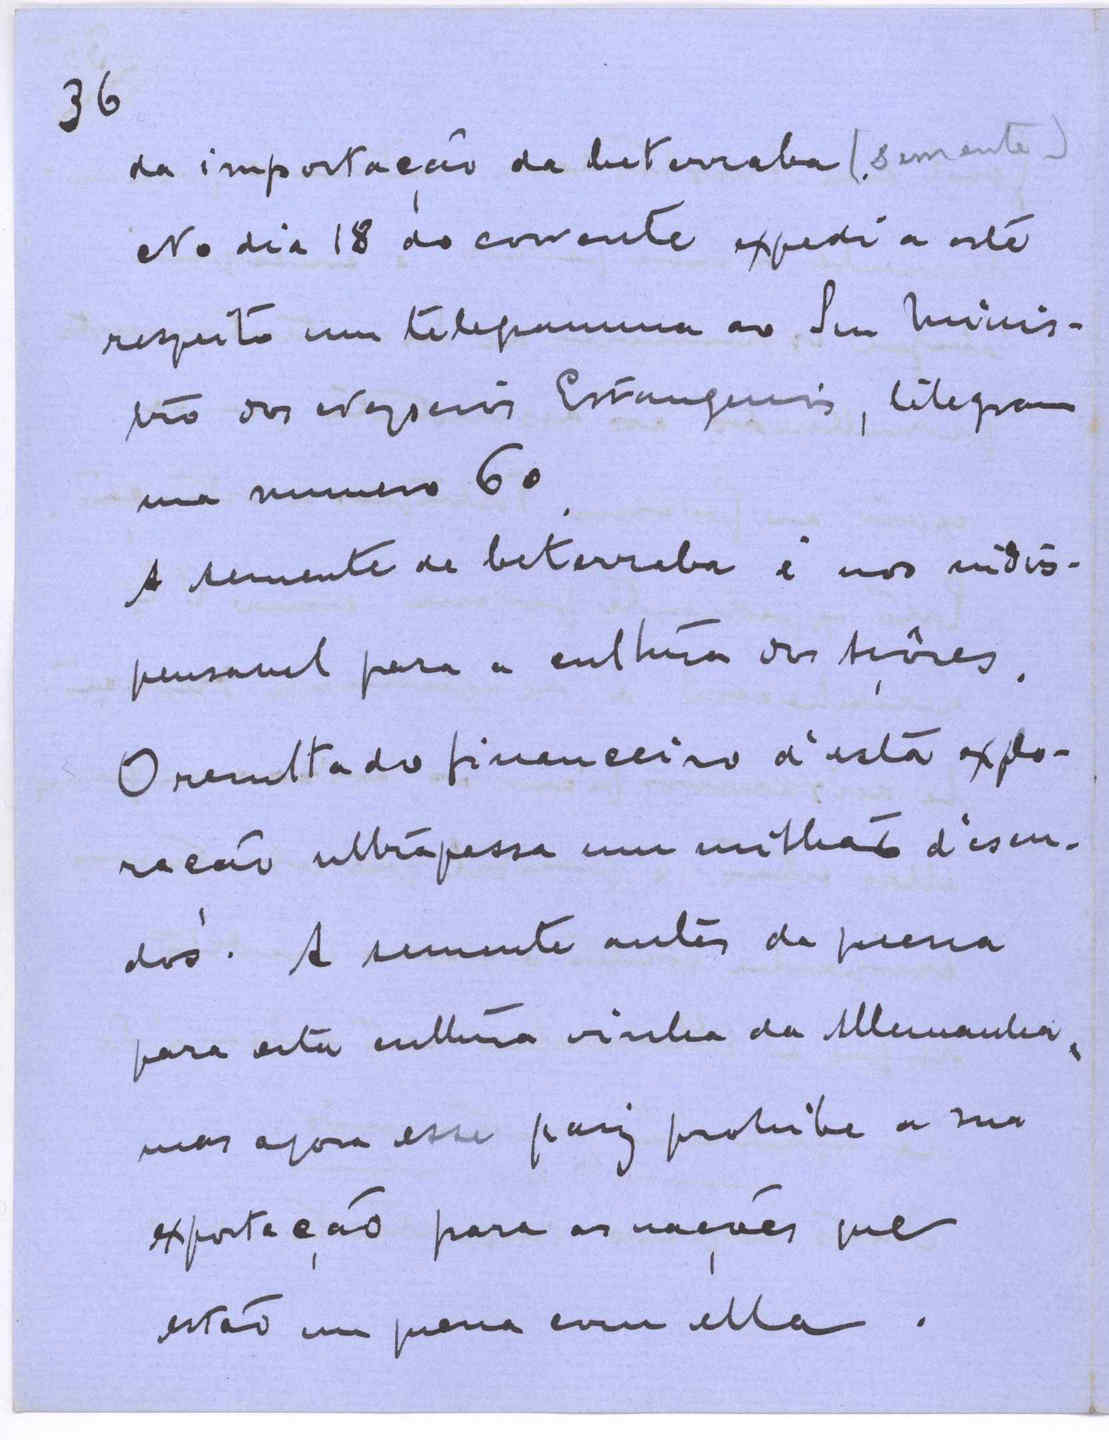 36
da importação da beterraba (semente)
No dia 18 do corrente expedi a este
respeito um telegramma ao Snr Minis-
tro dos Negocios Estrangeiros, telegram
ma numero 60.
A semente de beterraba é nos indis-
pensavel para a cultura dos Açôres.
O resultado financeiro d'esta explo-
ração ultrapassa um milhão d'escu-
dos. A semente antes da guerra
para esta cultura vinha da Allemanha,
mas agora esse paiz prohibe a sua
exportação para as nações que
estão em guerra com ella.